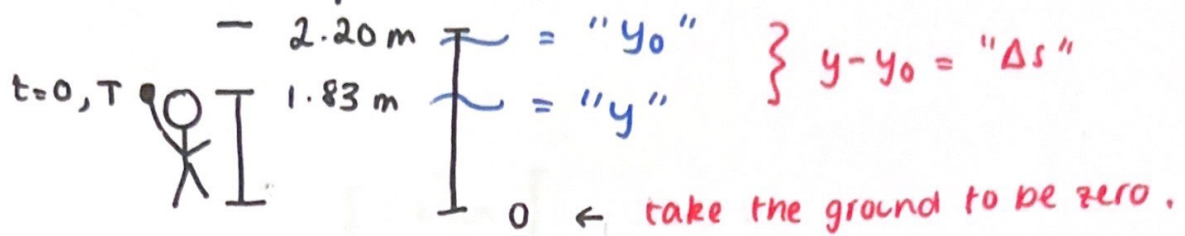 2.20 m = "y₀" } y-y₀ = "Δs"
t=0, T 1.83 m = "y"
0 ← take the ground to be zero.